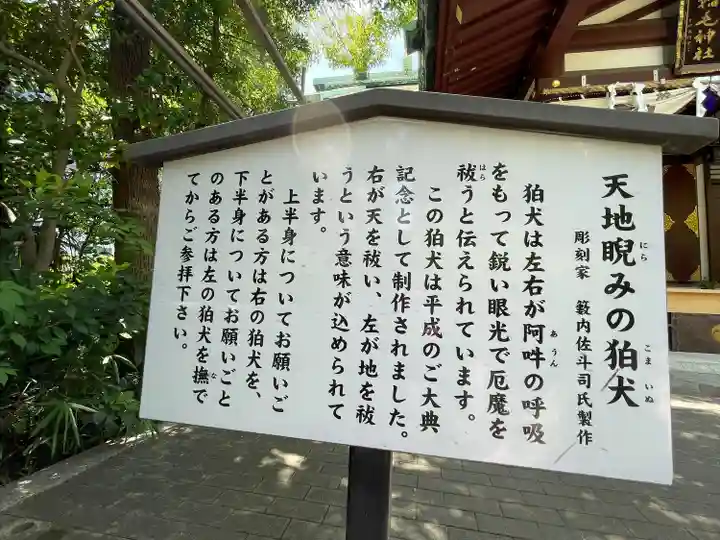 稲毛神社
天地睨みの狛犬
にら
こま いぬ
彫刻家 籔内佐斗司氏製作
狛犬は左右が阿吽の呼吸
あうん
をもって鋭い眼光で厄魔を
祓うと伝えられています。
はら
この狛犬は平成のご大典
記念として制作されました。
右が天を祓い、左が地を祓
うという意味が込められて
います。
上半身についてお願いご
とがある方は右の狛犬を、
下半身についてお願いごと
のある方は左の狛犬を撫で
な
てからご参拝下さい。